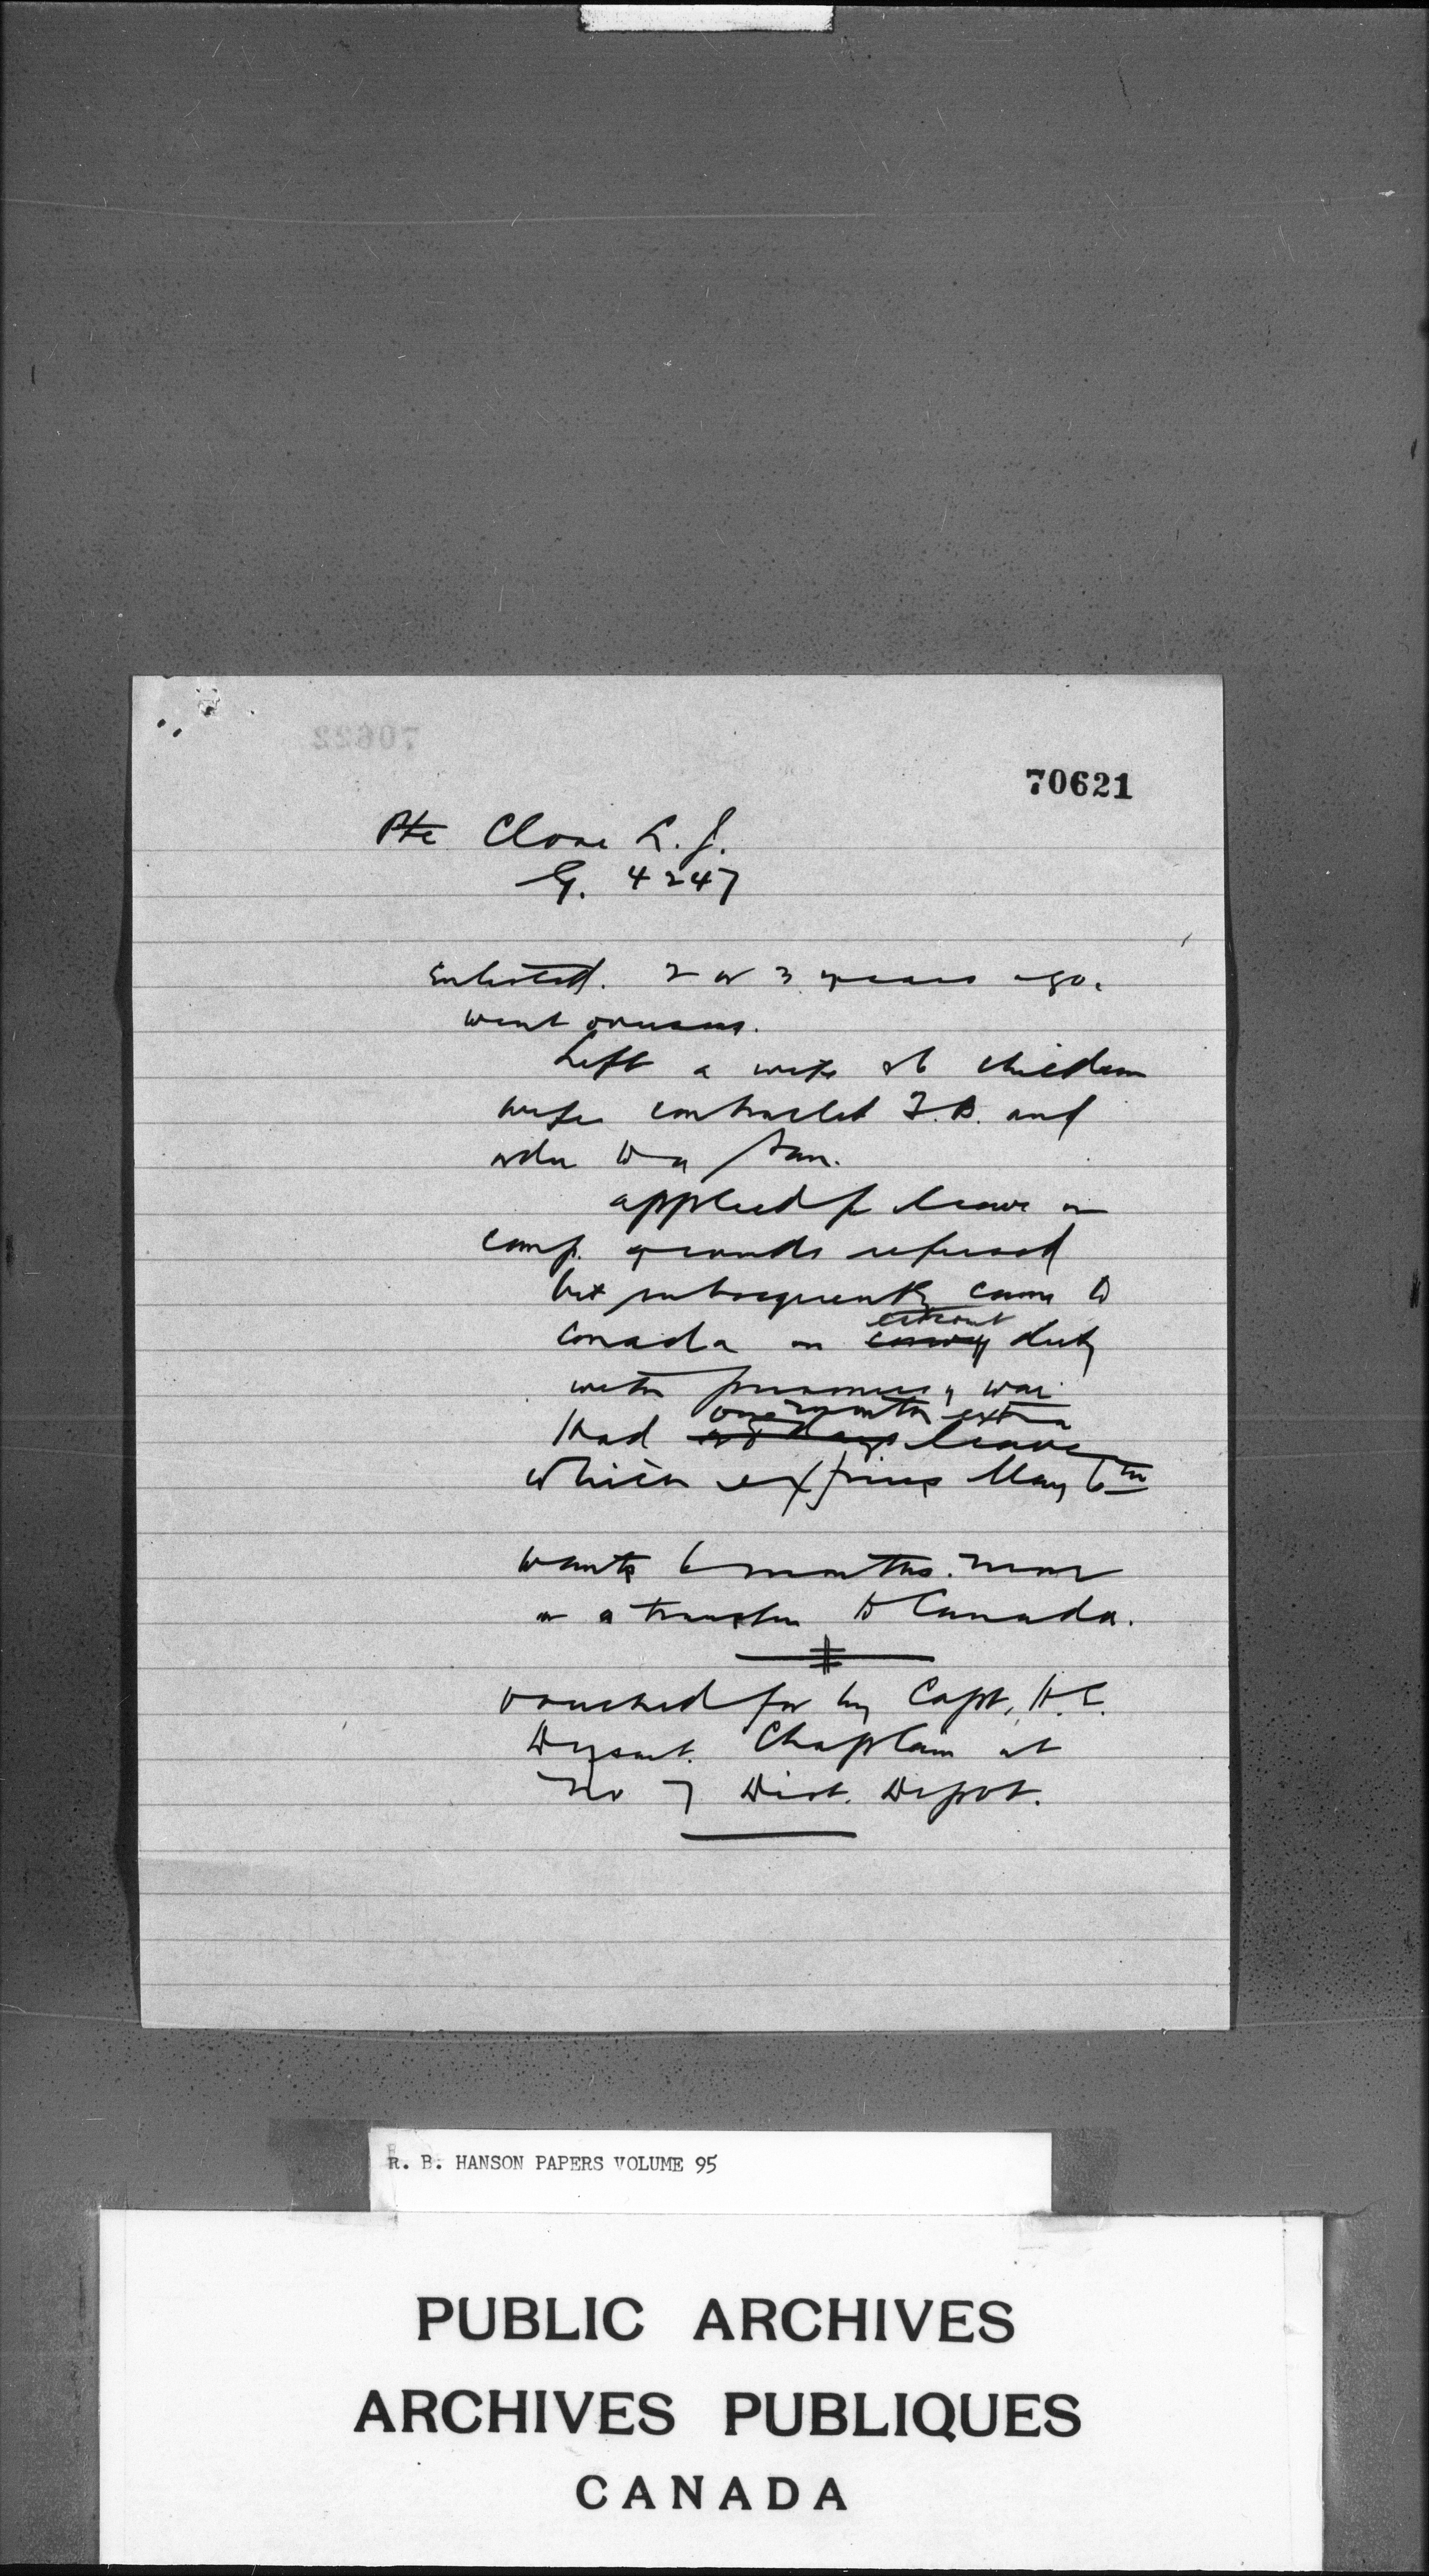 70622
70621
Pte Clove L. J.
G. 4247
Enlisted. 2 or 3 years ago.
went overseas.
Left a wife & 6 children
wife contracted T.B. and
to a San.
applied for leave on
comp. grounds refused
but subsequently came to
escort
Canada on convoy duty
with prisoners of war
one month extra
Had days leave
which expires May 6th
wants 6 months more
or a transfer to Canada.
vouched for by Capt. H.C.
Dysart. Chaplain at
No 7 Dist. Depot.
R. B. HANSON PAPERS VOLUME 95
PUBLIC ARCHIVES
ARCHIVES PUBLIQUES
CANADA